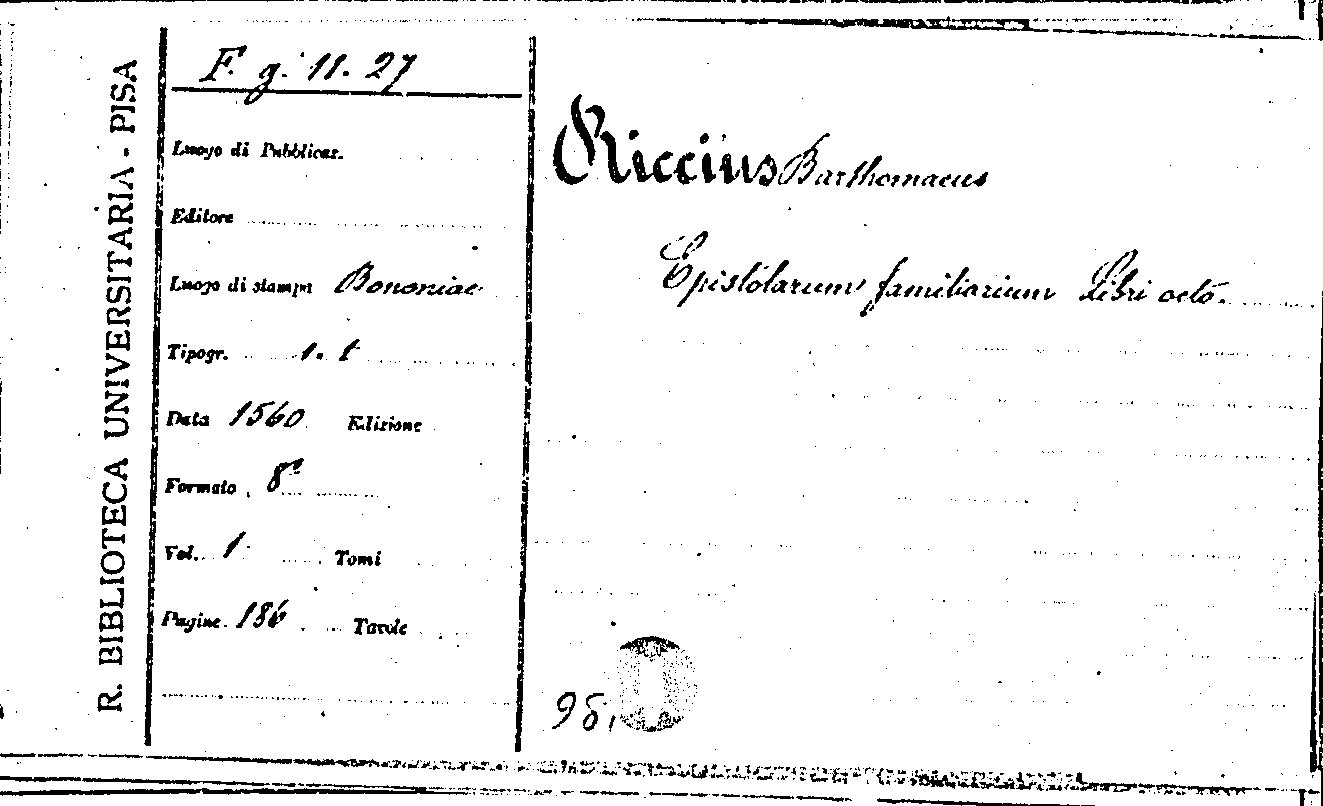 R. BIBLIOTECA UNIVERSITARIA - PISA
F. g. 11. 27
Luogo di Pubblicaz.
Editore
Luogo di stampa Bononiae
Tipogr. s. t
Data 1560 Edizione
Formato 8º
Vol. 1 Tomi
Pagine 186 Tavole
Riccius Barthomaeus
Epistolarum familiarium Libri octo.